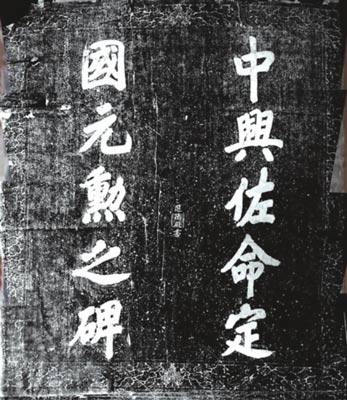 中興佐命定
國元勳之碑